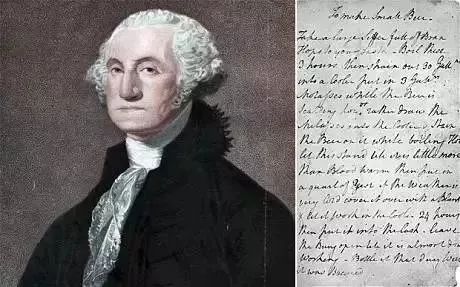 To make Small Beer
Take a large Siffer full of Bran
Hops to your Taste. - Boil these
3 hours. then strain out 30 Gallns
into a Cooler put in 3 Gallns
Molasses while the Beer is
Scalding hot or rather draw the
Molasses into the Cooler & Strain
the Beer on it while boiling Hot
let this stand till it is little more
than Blood warm then put in
a quart of Yeast if the Weather is
very Cold cover it over with a Blank
& let it work in the Cooler 24 hours
then put it into the Cask - leave
the Bung open till it is almost done
Working - Bottle it that day Week
it was Brewed